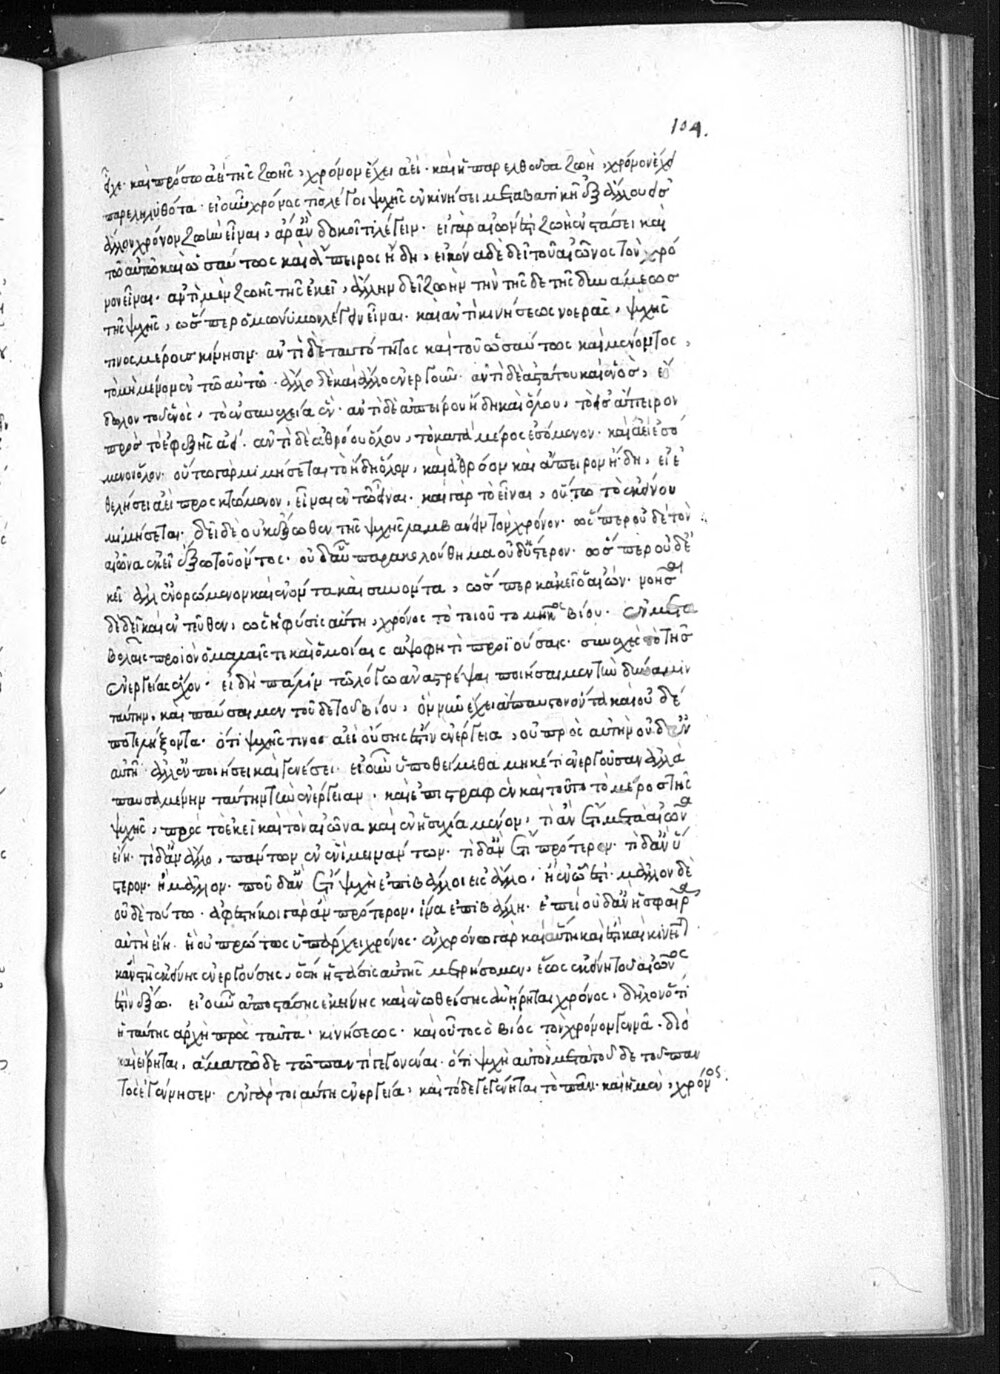 εἶχε· καὶ πρόσω ἀεὶ τῆς ζωῆς, χρόνον ἔχει ἀεί· καὶ ἡ παρελθοῦσα ζωὴ, χρόνον ἔχει
παρεληλυθότα· εἰ οὖν χρόνος τις λέγοι ψυχῆς ἐν κινήσει μεταβατικῇ ἐξ ἄλλου εἰς
ἄλλον χρόνον ζωὴν εἶναι, ἆρ' ἂν δοκοῖ τι λέγειν· εἰ γὰρ αἰών ἐστι ζωὴ ἐν στάσει καὶ
τῶ αὐτῶ καὶ ὡσαύτως καὶ ἄπειρος ἤδη, εἰκόνα δὲ δεῖ τοῦ αἰῶνος τὸν χρό
νον εἶναι· ἀντὶ μὲν ζωῆς τῆς ἐκεῖ, ἄλλην δεῖ ζωὴν τὴν τῆσδε τῆς δυνάμεως
τῆς ψυχῆς, ὥσπερ ὁμώνυμον λέγειν εἶναι· καὶ ἀντὶ κινήσεως νοερᾶς, ψυχῆς
τινος μέρους κίνησιν· ἀντὶ δὲ ταυτότητος καὶ τοῦ ὡσαύτως καὶ μένοντος,
τὸ μὴ μένον ἐν τῶ αὐτῶ· ἄλλο δὲ καὶ ἄλλο ἐνεργοῦν· ἀντὶ δὲ ἀδιαστάτου καὶ ἑνὸς, εἴ
δωλον τοῦ ἑνὸς, τὸ ἐν συνεχεία ἕν· ἀντὶ δὲ ἀπείρου ἤδη καὶ ὅλου, τὸ εἰς ἄπειρον
πρὸς τὸ ἐφεξῆς ἀεί· ἀντὶ δὲ ἀθρόου ὅλου, τὸ κατὰ μέρος ἐσόμενον· καὶ ἀεὶ ἐσό
μενον ὅλον· οὕτω γὰρ μιμήσεται τὸ ἤδη ὅλον, καὶ ἀθρόον καὶ ἄπειρον ἤδη, εἰ ἐ
θελήσει ἀεὶ προσκτώμενον, εἶναι ἐν τῶ εἶναι· καὶ γὰρ τὸ εἶναι, οὕτω τὸ ἐκείνου
μιμήσεται· δεῖ δὲ οὐκ ἔξωθεν τῆς ψυχῆς λαμβάνειν τὸν χρόνον· ὥσπερ οὐδὲ τὸν
αἰῶνα ἐκεῖ ἔξω τοῦ ὄντος· οὐδ' αὖ παρακολούθημα οὐδ' ὕστερον· ὥσπερ οὐδ' ἐ
κεῖ· ἀλλ' ἐνορώμενον καὶ ἐνόντα καὶ συνόντα, ὥσπερ κἀκεῖ ὁ αἰών· νοῆσαι
δὲ δεῖ καὶ ἐντεῦθεν, ὡς ἡ φύσις αὕτη, χρόνος τὸ τοιούτου μῆκος βίου· ἐν μετα
βολαῖς προϊὸν ὁμαλαῖς τε καὶ ὁμοίαις ἀψοφητὶ προϊούσαις· συνεχὲς τὸ τῆς
ἐνεργείας ἔχον· εἰ δὴ πάλιν τῶ λόγω ἀναστρέψαι ποιήσαιμεν τὴν δύναμιν
ταύτην, καὶ παύσαιμεν τοῦδε τοῦ βίου, ὃν νῦν ἔχει ἄπαυστον ὄντα καὶ οὐ δέ
ποτε λήξοντα· ὅτι ψυχῆς τινος ἀεὶ οὔσης ἐστὶν ἐνέργεια, οὐ πρὸς αὐτὴν οὐδ' ἐν
αὐτῆ· ἀλλ' ἐν ποιήσει καὶ γενέσει· εἰ οὖν ὑποθείμεθα μηκέτι ἐνεργοῦσαν ἀλλὰ
παυσαμένην ταύτην τὴν ἐνέργειαν, καὶ ἐπιστραφὲν καὶ τοῦτο τὸ μέρος τῆς
ψυχῆς, πρὸς τὸ ἐκεῖ καὶ τὸν αἰῶνα καὶ ἐν ἡσυχία μένον, τί ἂν ἔτι μετὰ αἰῶνα
εἴη· τί δ' ἂν ἄλλο, πάντων ἐν ἑνὶ μεινάντων· τί δ' ἂν ἔτι πρότερον· τί δ' ἂν ὕ
στερον· ἢ μᾶλλον· ποῦ δ' ἂν ἔτι ψυχὴ ἐπιβάλλοι εἰς ἄλλο, ἢ ἐν ὧ ἐστι· μᾶλλον δὲ
οὐδὲ τούτω· ἀφεστήκοι γὰρ ἂν πρότερον, ἵνα ἐπιβάλη· ἐπεὶ οὐδ' ἂν ἡ σφαῖρα
αὐτὴ εἴη· ἣ οὐ πρώτως ὑπάρχει χρόνος· ἐν χρόνω γὰρ καὶ αὕτη καὶ ἔστι καὶ κινεῖται·
κἂν στῆ ἐκείνης ἐνεργούσης, ὅση ἡ στάσις αὐτῆς μετρήσομεν, ἕως ἐκείνη τοῦ αἰῶνος
ἐστιν ἔξω· εἰ οὖν ἀποστάσης ἐκείνης καὶ ἑνωθείσης ἀνήρηται χρόνος, δηλονότι
ἡ ταύτης ἀρχὴ πρὸς ταῦτα κινήσεως· καὶ οὗτος ὁ βίος τὸν χρόνον γεννᾶ· διὸ
καὶ εἴρηται, ἅμα τῶδε τῶ παντὶ γεγονέναι· ὅτι ψυχὴ αὐτὸν μετὰ τοῦδε τοῦ παν
τὸς ἐγέννησεν· ἐν γὰρ τοι αὕτη ἐνεργεία, καὶ τόδε γεγένηται τὸ πᾶν· καὶ ἡ μὲν, χρόνος.
104.